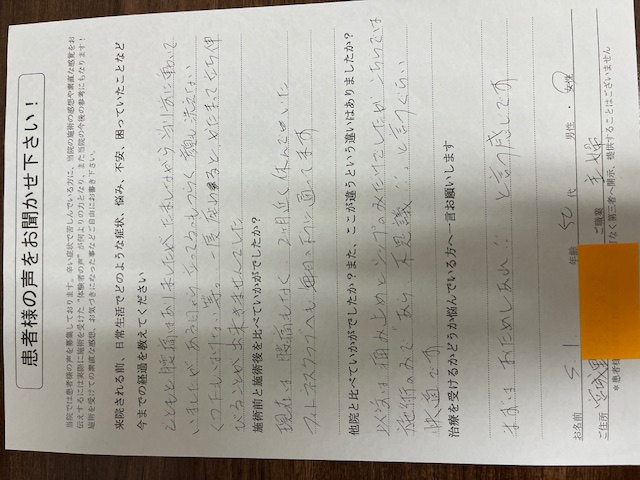 患者様の声をお聞かせ下さい！
当院では患者様の声を募集しております。辛い症状で苦しんでいる方に、当院の施術の感想や素直な感覚をお
伝えするには実際に施術を受けた"体験者の声"が何よりの力となり、また当院の今後の参考にもなります！
施術を受けての素直な感想、お気づきになった事などご自由にお書き下さい。
来院される前、日常生活でどのような症状、悩み、不安、困っていたことなど
今までの経過を教えてください
もともと腰痛はありましたが だましだましながら 当り前に動いて
いましたが ある日 立っても座ってもつらく 顔も洗えない
くつ下もはけない 等。一度座ると、
ことが出来ませんでした
施術前と施術後を比べていかがでしたか？
現在は 腰痛もなく 2ヶ月近く休んでいた
フィットネスクラブへも 毎日の様に通ってます
他院と比べていかがでしたか？また、ここが違うという違いはありましたか？
以前は痛み止めとシップのみだけでしたが こちらでは
施術のみであり 不思議!! と言うぐらい
快適です
治療を受けるかどうか悩んでいる方へ一言お願いします
まずは おためしあれ!! と言う感じです
お名前 S. I 年齢 50 代 男性 ・ 女性
ご住所 宮城県 ご職業 主婦
*患者様 なく第三者へ開示、提供することはございません